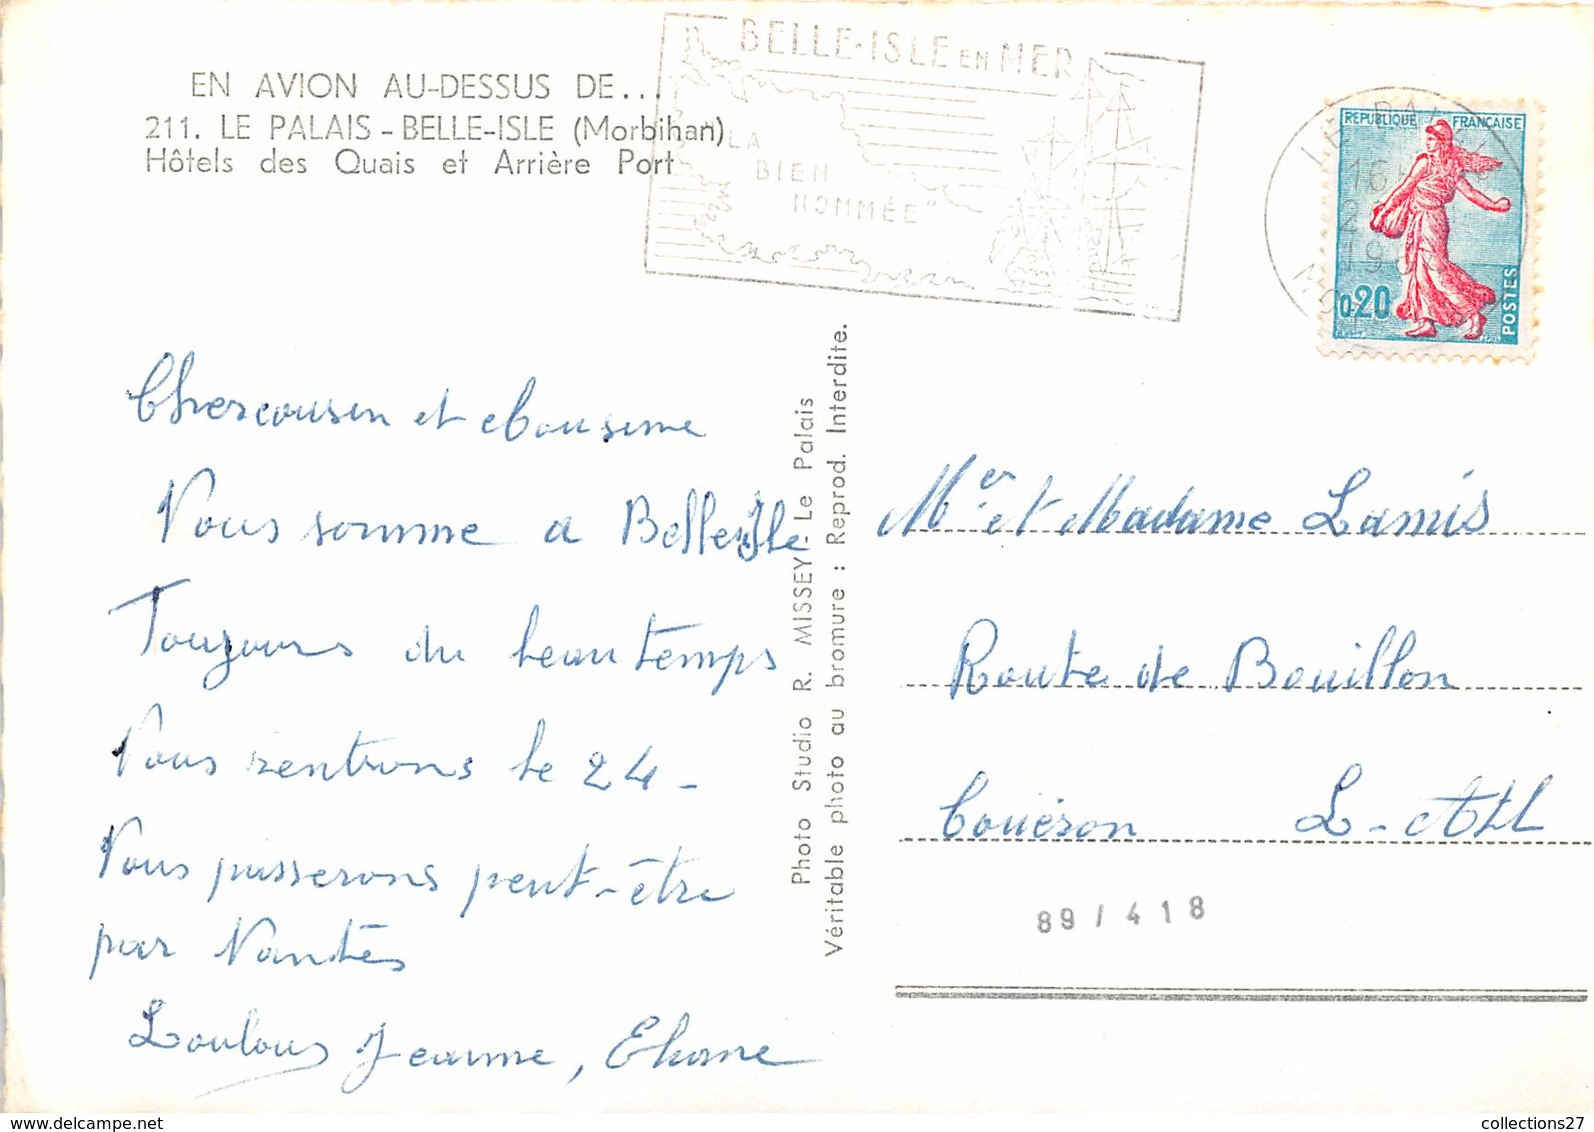 EN AVION AU-DESSUS DE...
211. LE PALAIS - BELLE-ISLE (Morbihan)
Hôtels des Quais et Arrière Port
BELLE-ISLE EN MER
"LA
BIEN
NOMMÉE"
REPUBLIQUE FRANÇAISE
0,20
POSTES
LE PALAIS
16
19
Cher cousin et Cousine
Nous somme a Belle Isle
Toujours du beau temps
Nous rentrons le 24 -
Nous passerons peut-être
par Nantes
Loulous Jeanne,
Photo Studio R. MISSEY - Le Palais
Véritable photo au bromure : Reprod. Interdite.
Mer et Madame Lamis
Route de Bouillon
Couëron L-Atl
89 / 418
collections27
www.delcampe.net